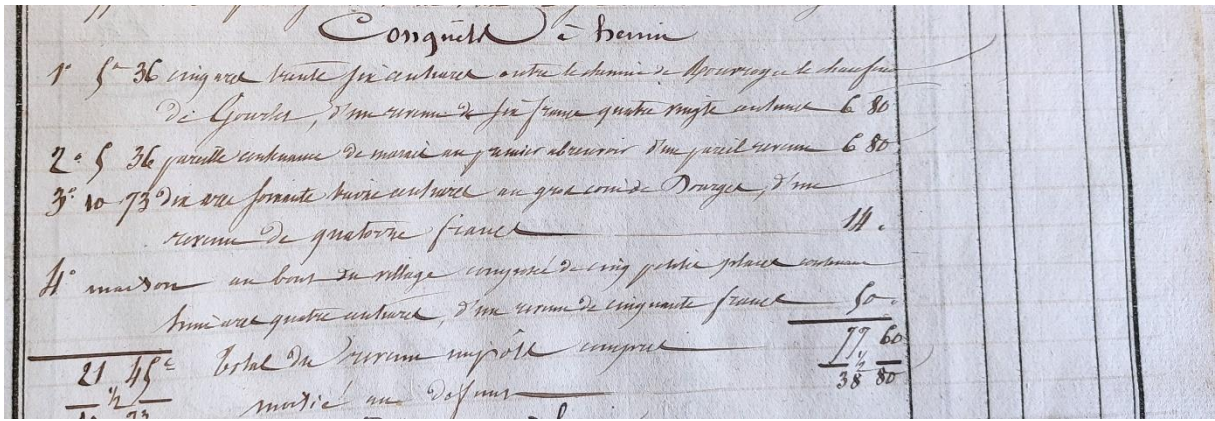 Conquêts à henin
1° 5ª 36 cinq ares trente six centiares entre le chemin de et le
de , d'un revenu de six francs quatre vingts centimes 6 80
2° 5 36 pareille contenance de marais au premier abreuvoir d'un pareil revenu 6 80
3° 10 73 dix ares soixante treize centiares au gros coin de Dourges, d'un
revenu de quatorze francs 14 "
4° maison au bout du village composée de cinq petites places contenant
ares quatre centiares, d'un revenu de cinquante francs 50 "
21 45ᶜ total du revenu impôts compris 77 60
½ moitié au défunt ½ 38 80